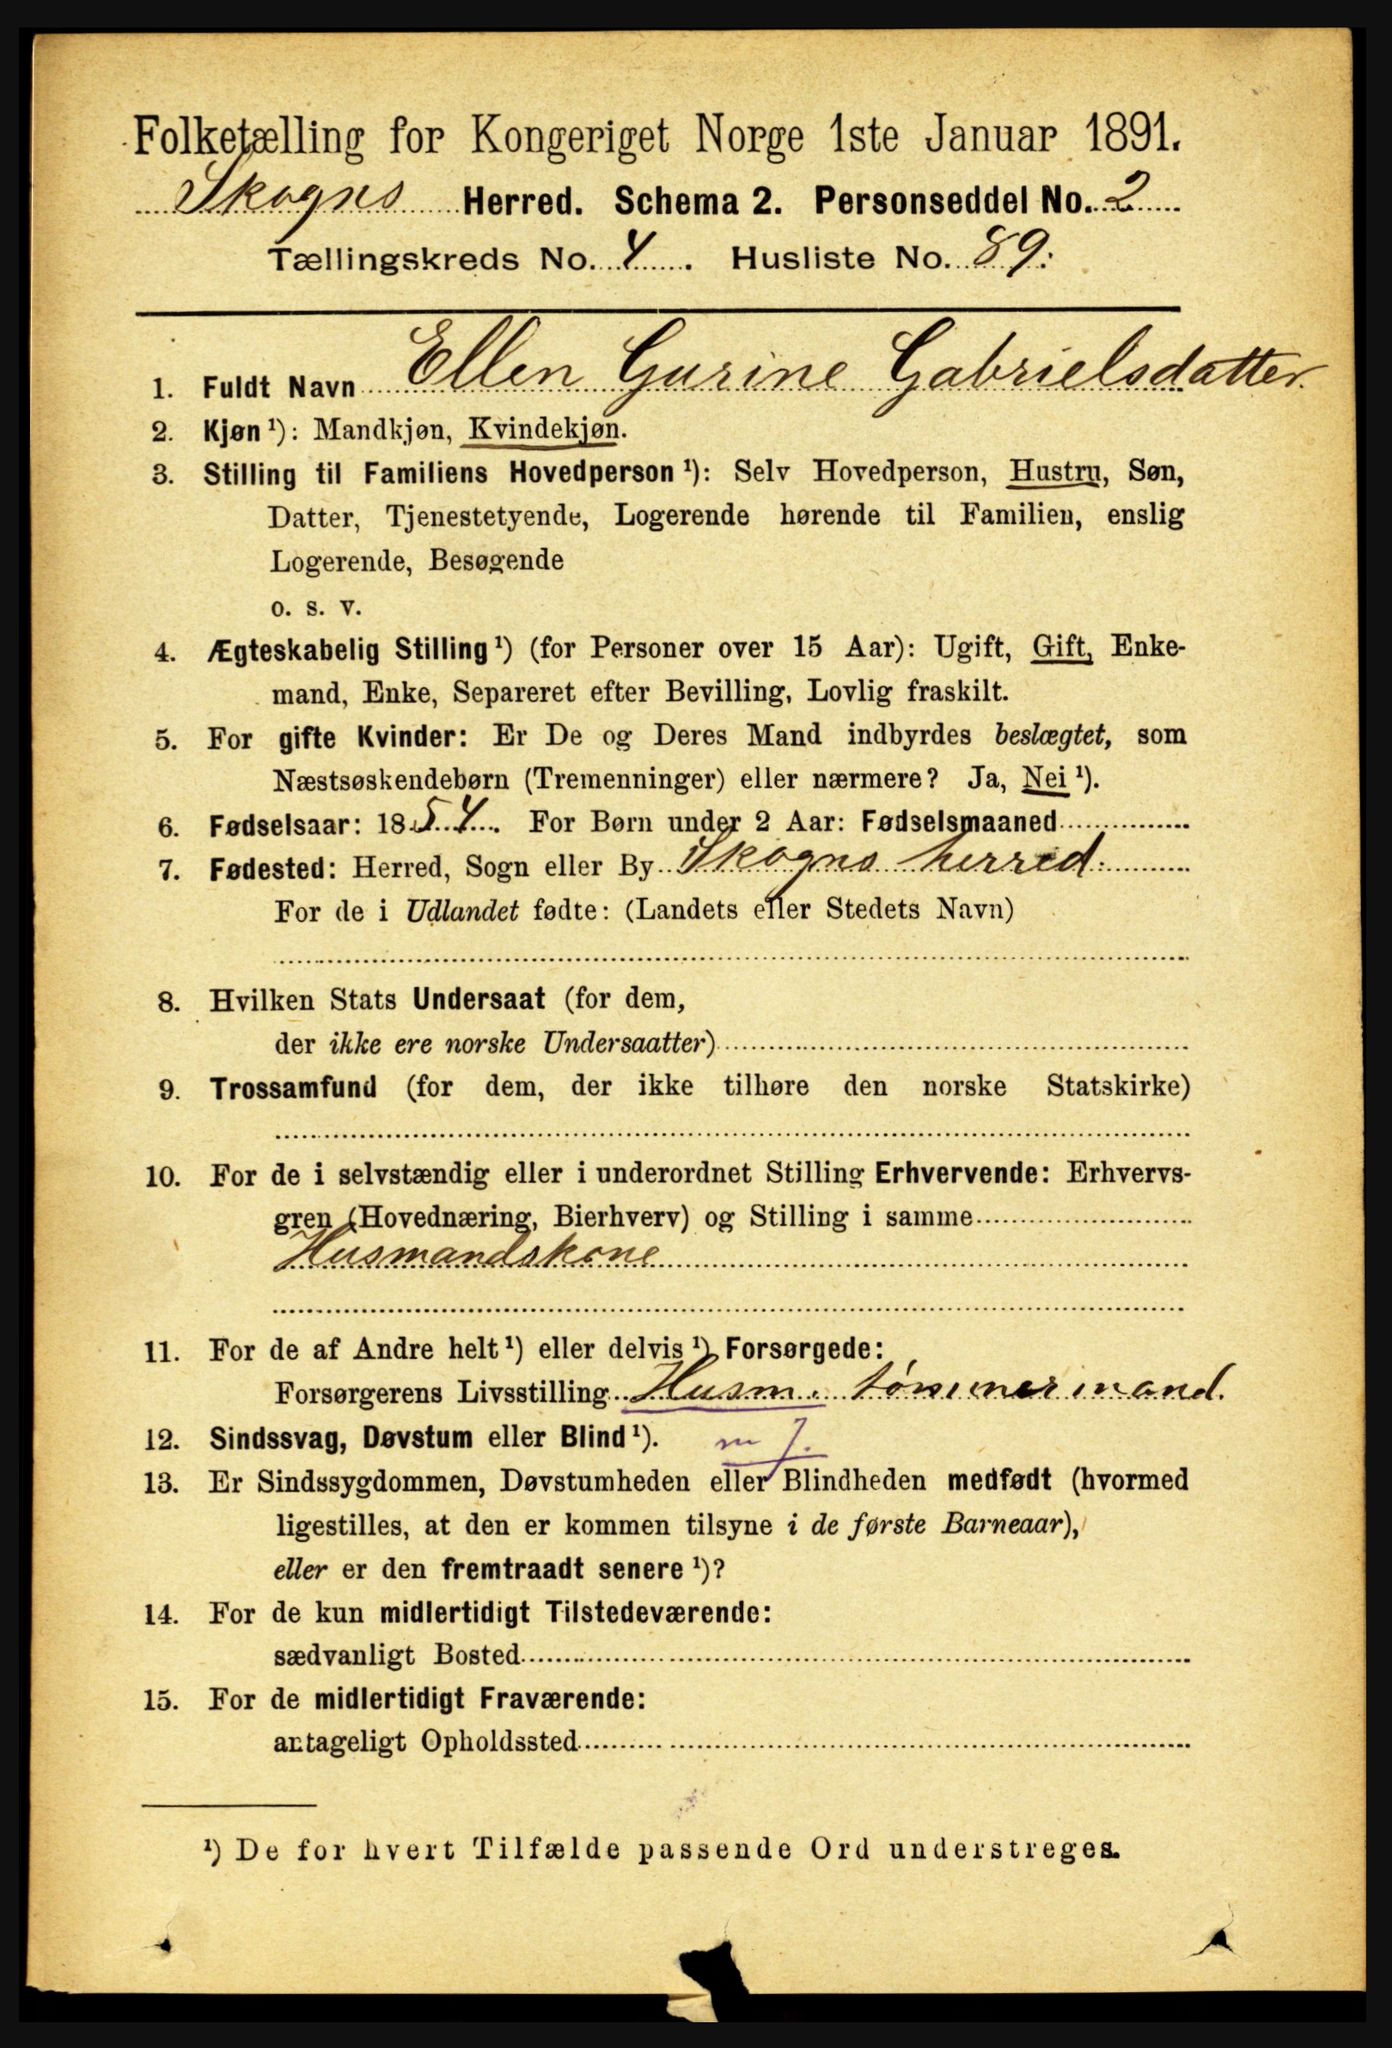 Folketælling for Kongeriget Norge 1ste Januar 1891.
Skogns Herred. Schema 2. Personseddel No. 2
Tællingskreds No. 4. Husliste No. 89.
1. Fuldt Navn Ellen Gurine Gabrielsdatter.
2. Kjøn ¹): Mandkjøn, Kvindekjøn.
3. Stilling til Familiens Hovedperson ¹): Selv Hovedperson, Hustru, Søn,
Datter, Tjenestetyende, Logerende hørende til Familien, enslig
Logerende, Besøgende
o. s. v.
4. Ægteskabelig Stilling ¹) (for Personer over 15 Aar): Ugift, Gift, Enke-
mand, Enke, Separeret efter Bevilling, Lovlig fraskilt.
5. For gifte Kvinder: Er De og Deres Mand indbyrdes beslægtet, som
Næstsøskendebørn (Tremenninger) eller nærmere? Ja, Nei ¹).
6. Fødselsaar: 1854. For Børn under 2 Aar: Fødselsmaaned
7. Fødested: Herred, Sogn eller By Skogns herred.
For de i Udlandet fødte: (Landets eller Stedets Navn)
8. Hvilken Stats Undersaat (for dem,
der ikke ere norske Undersaatter)
9. Trossamfund (for dem, der ikke tilhøre den norske Statskirke)
10. For de i selvstændig eller i underordnet Stilling Erhvervende: Erhvervs-
gren (Hovednæring, Bierhverv) og Stilling i samme
Husmandskone
11. For de af Andre helt ¹) eller delvis ¹) Forsørgede:
Forsørgerens Livsstilling Husm. tømmermand.
12. Sindssvag, Døvstum eller Blind ¹).
13. Er Sindssygdommen, Døvstumheden eller Blindheden medfødt (hvormed
ligestilles, at den er kommen tilsyne i de første Barneaar),
eller er den fremtraadt senere ¹)?
14. For de kun midlertidigt Tilstedeværende:
sædvanligt Bosted
15. For de midlertidigt Fraværende:
antageligt Opholdssted
¹) De for hvert Tilfælde passende Ord understreges.